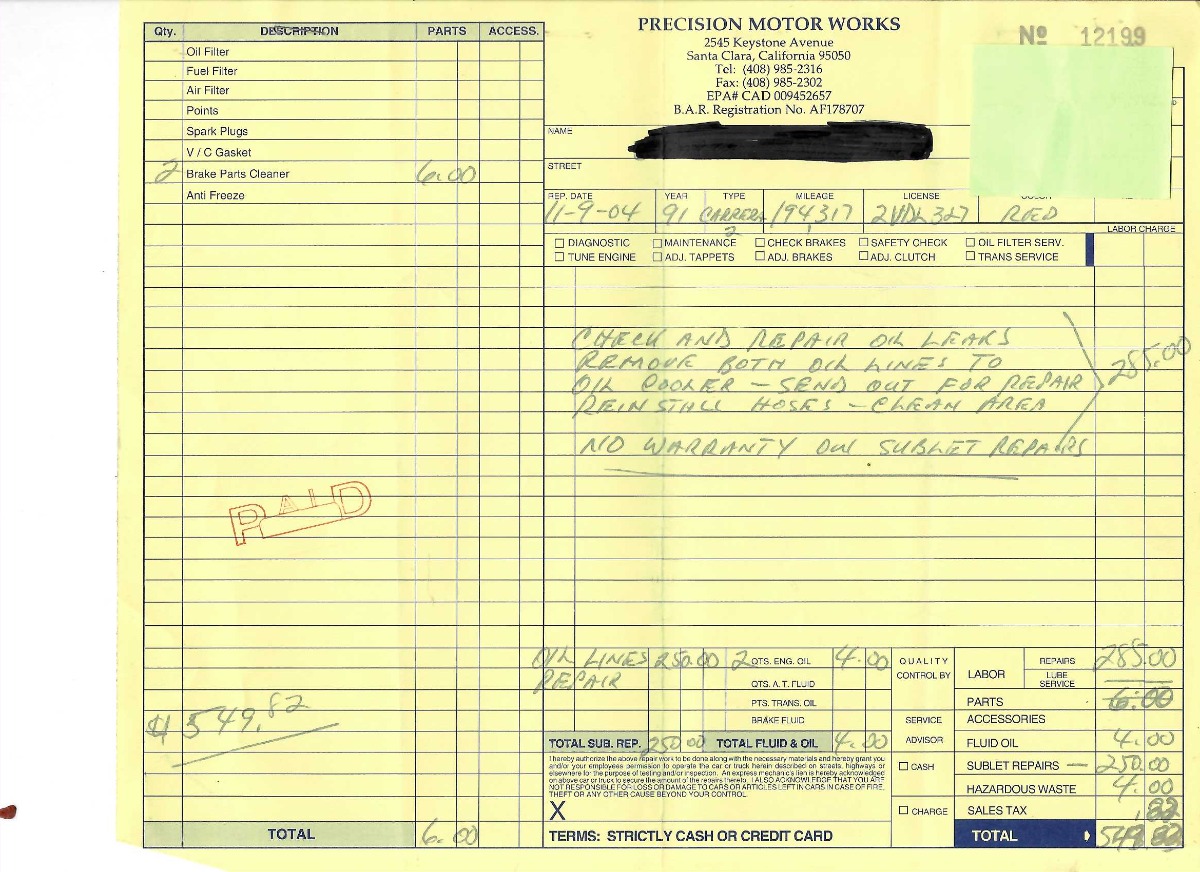 PRECISION MOTOR WORKS
2545 Keystone Avenue
Santa Clara, California 95050
Tel: (408) 985-2316
Fax: (408) 985-2302
EPA# CAD 009452657
B.A.R. Registration No. AF178707
Nº 12199
Qty. DESCRIPTION PARTS ACCESS.
Oil Filter
Fuel Filter
Air Filter
Points
Spark Plugs
V / C Gasket
2 Brake Parts Cleaner 6.00
Anti Freeze
PAID
$ 549.82
TOTAL 6.00
NAME
STREET
REP. DATE YEAR TYPE MILEAGE LICENSE COLOR
11-9-04 91 CARRERA 2 194,317 2VDL327 RED
LABOR CHARGE
☐ DIAGNOSTIC ☐ MAINTENANCE ☐ CHECK BRAKES ☐ SAFETY CHECK ☐ OIL FILTER SERV.
☐ TUNE ENGINE ☐ ADJ. TAPPETS ☐ ADJ. BRAKES ☐ ADJ. CLUTCH ☐ TRANS SERVICE
CHECK AND REPAIR OIL LEAKS
REMOVE BOTH OIL LINES TO
OIL COOLER - SEND OUT FOR REPAIR 285.00
REINSTALL HOSES - CLEAN AREA
NO WARRANTY ON SUBLET REPAIRS
OIL LINES 250.00 2 QTS. ENG. OIL 4.00
REPAIR QTS. A.T. FLUID
PTS. TRANS. OIL
BRAKE FLUID
TOTAL SUB. REP. 250.00 TOTAL FLUID & OIL 4.00
I hereby authorize the above repair work to be done along with the necessary materials and hereby grant you
and/or your employees permission to operate the car or truck herein described on streets, highways or
elsewhere for the purpose of testing and/or inspection. An express mechanic's lien is hereby acknowledged
on above car or truck to secure the amount of the repairs thereto. I ALSO ACKNOWLEDGE THAT YOU ARE
NOT RESPONSIBLE FOR LOSS OR DAMAGE TO CARS OR ARTICLES LEFT IN CARS IN CASE OF FIRE,
THEFT OR ANY OTHER CAUSE BEYOND YOUR CONTROL.
X
TERMS: STRICTLY CASH OR CREDIT CARD
QUALITY CONTROL BY
SERVICE ADVISOR
☐ CASH
☐ CHARGE
LABOR REPAIRS 285.00
LUBE SERVICE
PARTS 6.00
ACCESSORIES
FLUID OIL 4.00
SUBLET REPAIRS — 250.00
HAZARDOUS WASTE 4.00
SALES TAX .82
TOTAL 549.82